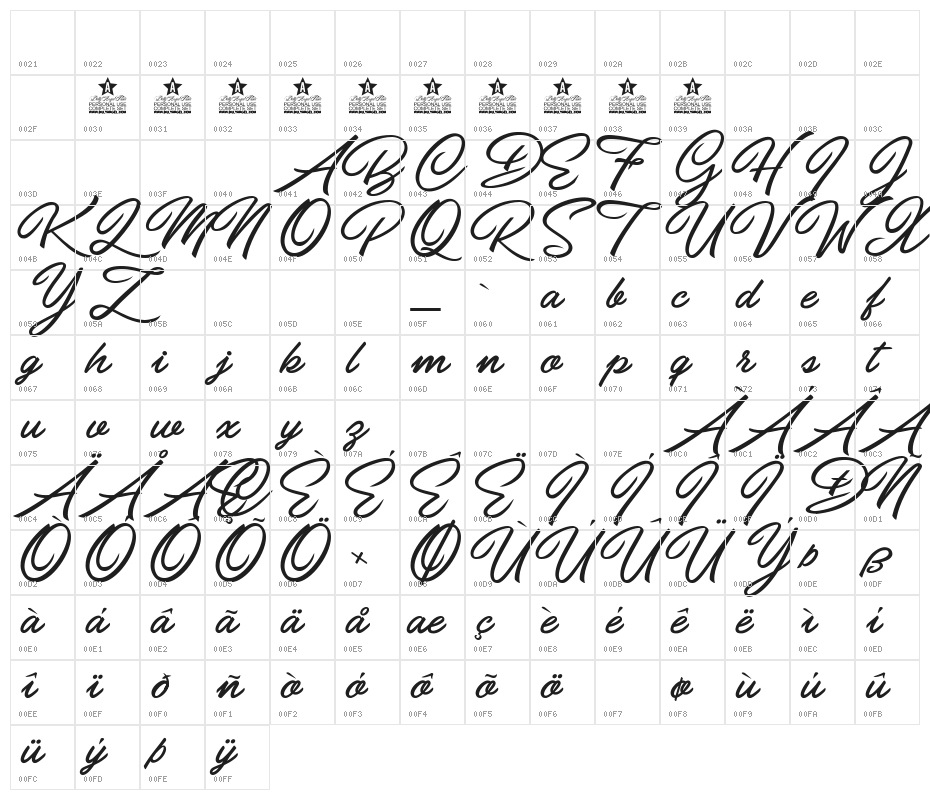 0021 0022 0023 0024 0025 0026 0027 0028 0029 002A 002B 002C 002D 002E
A A A A A A A A A A
PERSONAL USE PERSONAL USE PERSONAL USE PERSONAL USE PERSONAL USE PERSONAL USE PERSONAL USE PERSONAL USE PERSONAL USE PERSONAL USE
COMPLETE SET COMPLETE SET COMPLETE SET COMPLETE SET COMPLETE SET COMPLETE SET COMPLETE SET COMPLETE SET COMPLETE SET COMPLETE SET
002F 0030 0031 0032 0033 0034 0035 0036 0037 0038 0039 003A 003B 003C
A B C D E F G H I J
003D 003E 003F 0040 0041 0042 0043 0044 0045 0046 0047 0048 0049 004A
K L M N O P Q R S T U V W X
004B 004C 004D 004E 004F 0050 0051 0052 0053 0054 0055 0056 0057 0058
Y Z _ ` a b c d e f
0059 005A 005B 005C 005D 005E 005F 0060 0061 0062 0063 0064 0065 0066
g h i j k l m n o p q r s t
0067 0068 0069 006A 006B 006C 006D 006E 006F 0070 0071 0072 0073 0074
u v w x y z À Á Â Ã
0075 0076 0077 0078 0079 007A 007B 007C 007D 007E 00C0 00C1 00C2 00C3
Ä Å Æ Ç È É Ê Ë Ì Í Î Ï Ð Ñ
00C4 00C5 00C6 00C7 00C8 00C9 00CA 00CB 00CC 00CD 00CE 00CF 00D0 00D1
Ò Ó Ô Õ Ö × Ø Ù Ú Û Ü Ý Þ ß
00D2 00D3 00D4 00D5 00D6 00D7 00D8 00D9 00DA 00DB 00DC 00DD 00DE 00DF
à á â ã ä å æ ç è é ê ë ì í
00E0 00E1 00E2 00E3 00E4 00E5 00E6 00E7 00E8 00E9 00EA 00EB 00EC 00ED
î ï ð ñ ò ó ô õ ö ø ù ú û
00EE 00EF 00F0 00F1 00F2 00F3 00F4 00F5 00F6 00F7 00F8 00F9 00FA 00FB
ü ý þ ÿ
00FC 00FD 00FE 00FF